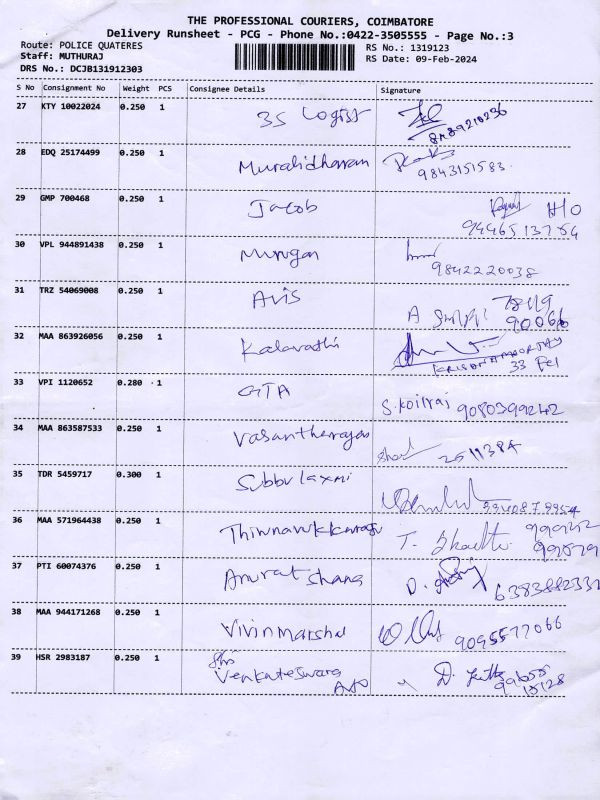 THE PROFESSIONAL COURIERS, COIMBATORE
Delivery Runsheet - PCG - Phone No.:0422-3505555 - Page No.:3
Route: POLICE QUATERES
Staff: MUTHURAJ
DRS No.: DCJB131912303
RS No.: 1319123
RS Date: 09-Feb-2024
S No Consignment No Weight PCS Consignee Details Signature
27 KTY 10022024 0.250 1 3S Logist
28 EDQ 25174499 0.250 1 Muralidharan
9843151583
29 GMP 700468 0.250 1 Jacob H/O
30 VPL 944891438 0.250 1 Murugan
9842220038
31 TRZ 54069008 0.250 1 Avis
90066
32 MAA 863926056 0.250 1 Kalavathi
KRISHNAMOORTHY
33 VPI 1120652 0.280 1 GTA S.Koilraj 9080399242
34 MAA 863587533 0.250 1 Vasantharajan
35 TDR 5459717 0.300 1 Subbu laxmi
36 MAA 571964438 0.250 1 T.
37 PTI 60074376 0.250 1 Amrat shana D.
38 MAA 944171268 0.250 1 Vivin Marshal 9095577066
39 HSR 2983187 0.250 1 Shri
Venkateswara D.